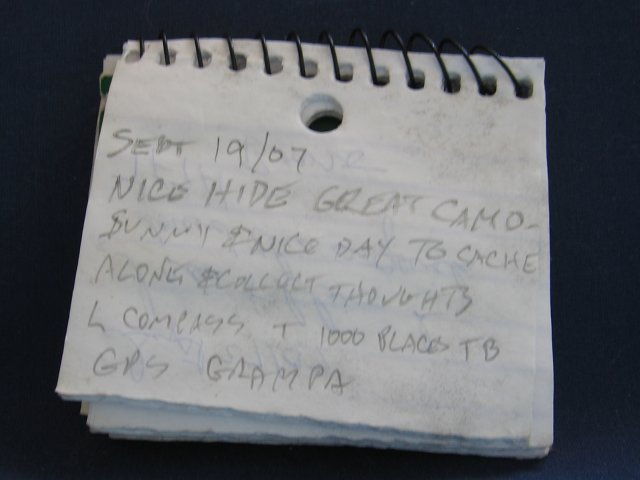 SEPT 19/07
NICE HIDE GREAT CAMO-
SUNNY & NICE DAY TO CACHE
ALONG & COLLECT THOUGHTS
L COMPASS T 1000 PLACES TB
GPS GRAMPA